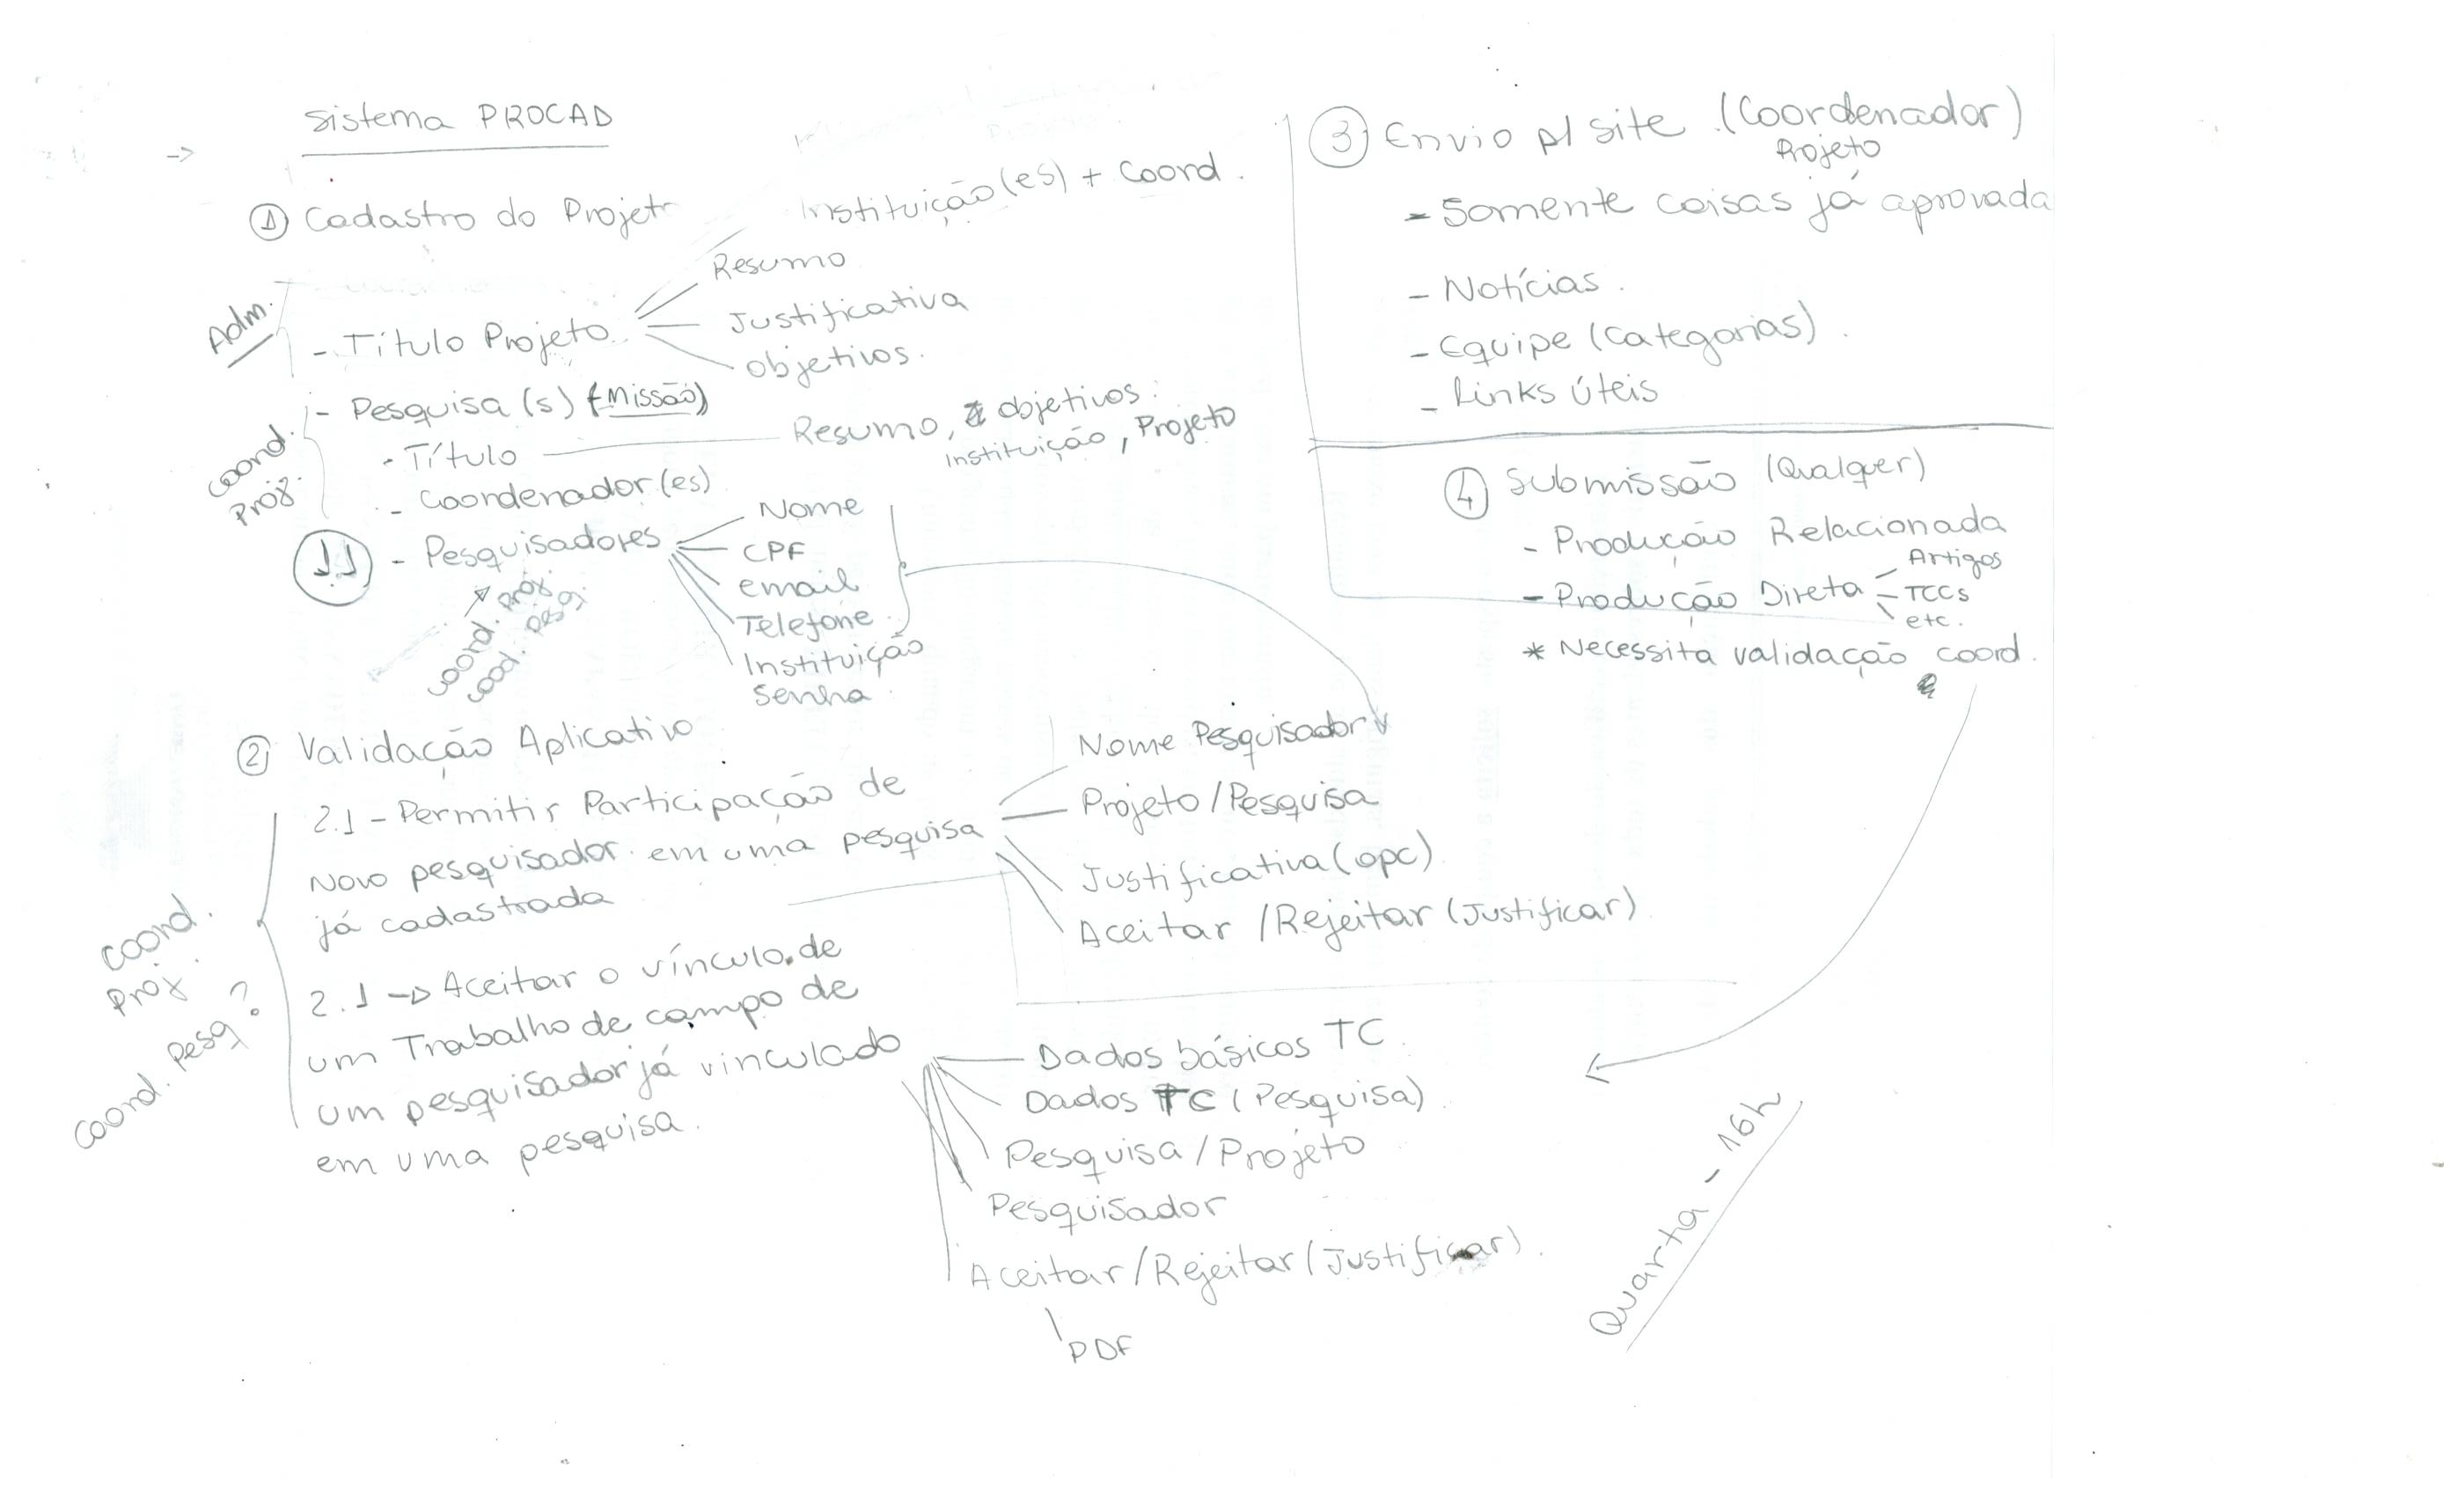 Sistema PROCAD
->
① Cadastro do Projeto
Instituição(es) + Coord.
Resumo
Justificativa
objetivos.
Adm.
- Título Projeto
- Pesquisa(s) (Missão)
- Título
Resumo, objetivos.
Instituição, Projeto
- Coordenador(es)
Coord.
Proj.
1.1 - Pesquisadores
Nome
CPF
email
Telefone
Instituição
Senha
coord. proj.
coord. pesq.
② Validação Aplicativo
2.1 - Permitir Participação de
Novo pesquisador em uma pesquisa
já cadastrada
Nome Pesquisador
Projeto/Pesquisa
Justificativa (opc)
Aceitar /Rejeitar (Justificar)
2.1 -> Aceitar o vínculo de
um Trabalho de campo de
um pesquisador já vinculado
em uma pesquisa.
coord.
Proj.
coord. pesq?
Dados básicos TC.
Dados TC (Pesquisa)
Pesquisa/Projeto
Pesquisador
Aceitar/Rejeitar (Justificar).
PDF
③ Envio p/ site (Coordenador)
Projeto
- Somente coisas já aprovada
- Notícias.
- Equipe (categorias).
- Links úteis
④ Submissão (Qualquer)
- Produção Relacionada
- Produção Direta
Artigos
- TCCs
etc.
* Necessita validação coord.
Quarta - 16h